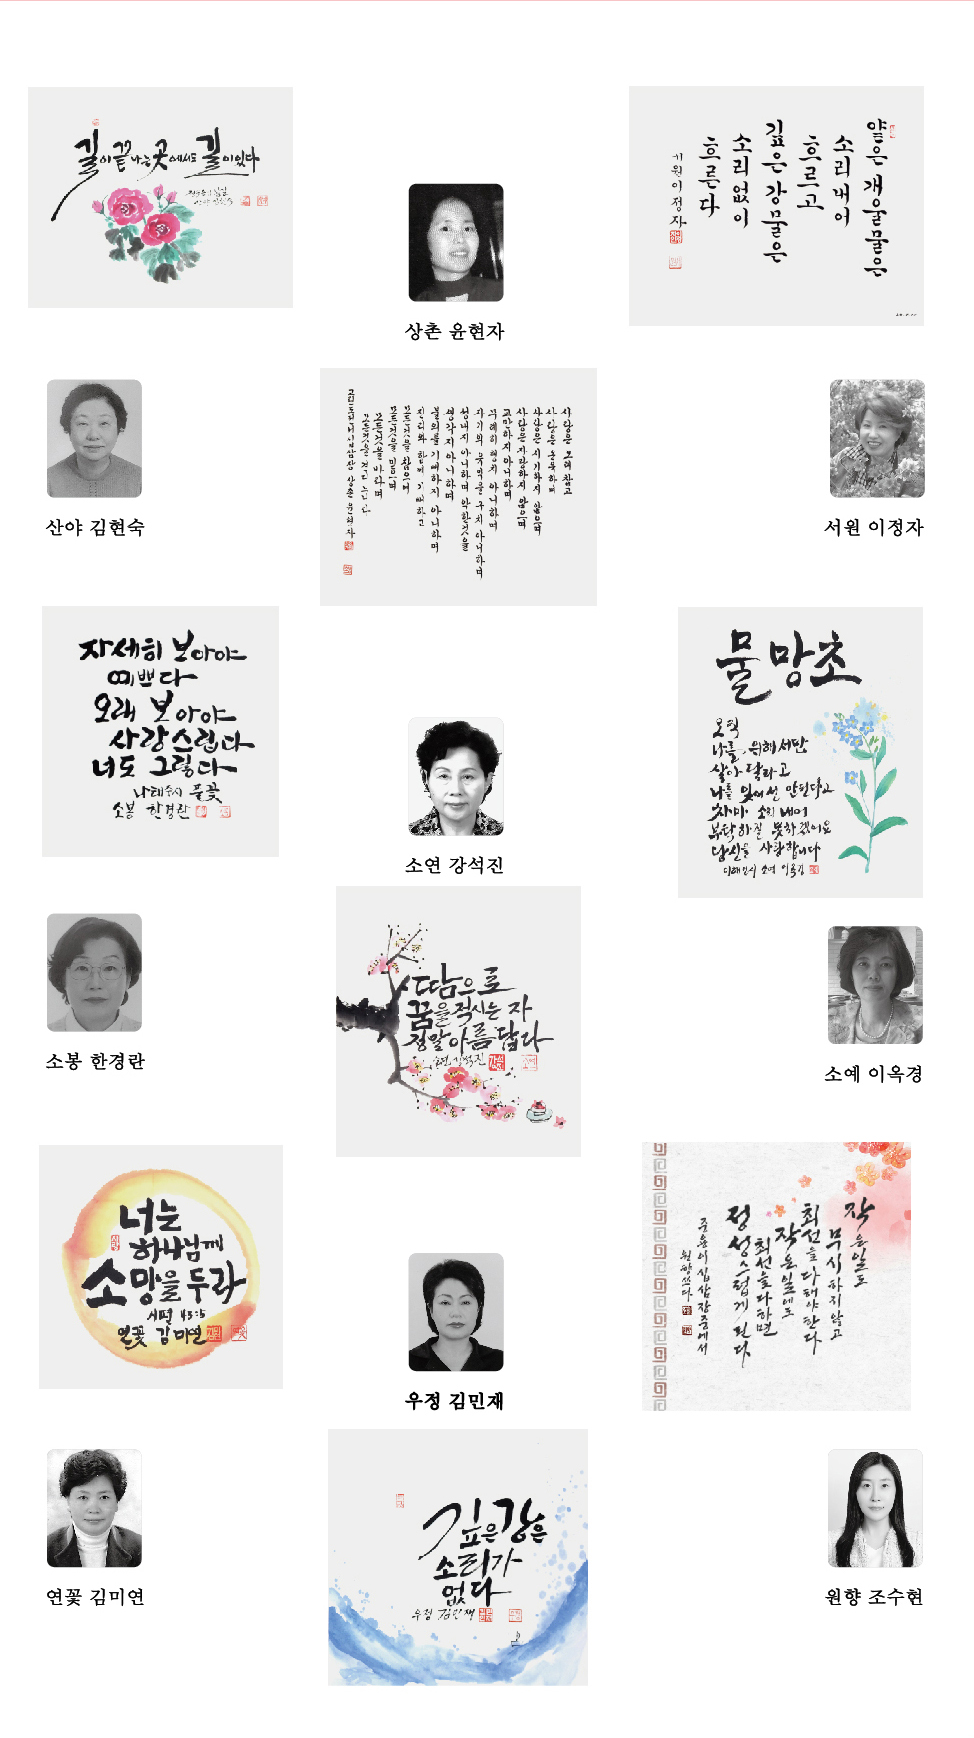 길이 끝나는 곳에서도 길이 있다
산야 김현숙
상촌 윤현자
얕은 개울물은
소리 내어
흐르고
깊은 강물은
소리 없이
흐른다
서원 이정자
서원 이정자
사랑은 오래 참고
사랑은 온유하며
사랑은 시기하지 않으며
사랑은 자랑하지 않으며
교만하지 아니하며
무례히 행치 아니하며
자기의 유익을 구치 아니하며
성내지 아니하며 악한것을
생각지 아니하며
불의를 기뻐하지 아니하며
진리와 함께 기뻐하고
모든것을 참으며
모든것을 믿으며
모든것을 바라며
모든것을 견디느니라
고린도전서십삼장 상촌 윤현자
자세히 보아야
예쁘다
오래 보아야
사랑스럽다
너도 그렇다
나태주시 풀꽃
소봉 한경란
소연 강석진
물망초
오직
나를 위해서만
살아 달라고
나를 잊어선 안된다고
차마 소리 내어
부탁하질 못하겠어요
당신을 사랑합니다
이해인시 소예 이옥경
소봉 한경란
땀으로
꿈을 적시는 자
정말 아름답다
소연 강석진
소예 이옥경
너는
하나님께
소망을 두라
시편 43:5
연꽃 김미연
우정 김민재
작은일도
무시하지않고
최선을다해야한다
작은일에도
최선을다하면
정성스럽게된다
중용이십삼장중에서
원향쓰다
연꽃 김미연
깊은 강은
소리가
없다
우정 김민재
원향 조수현